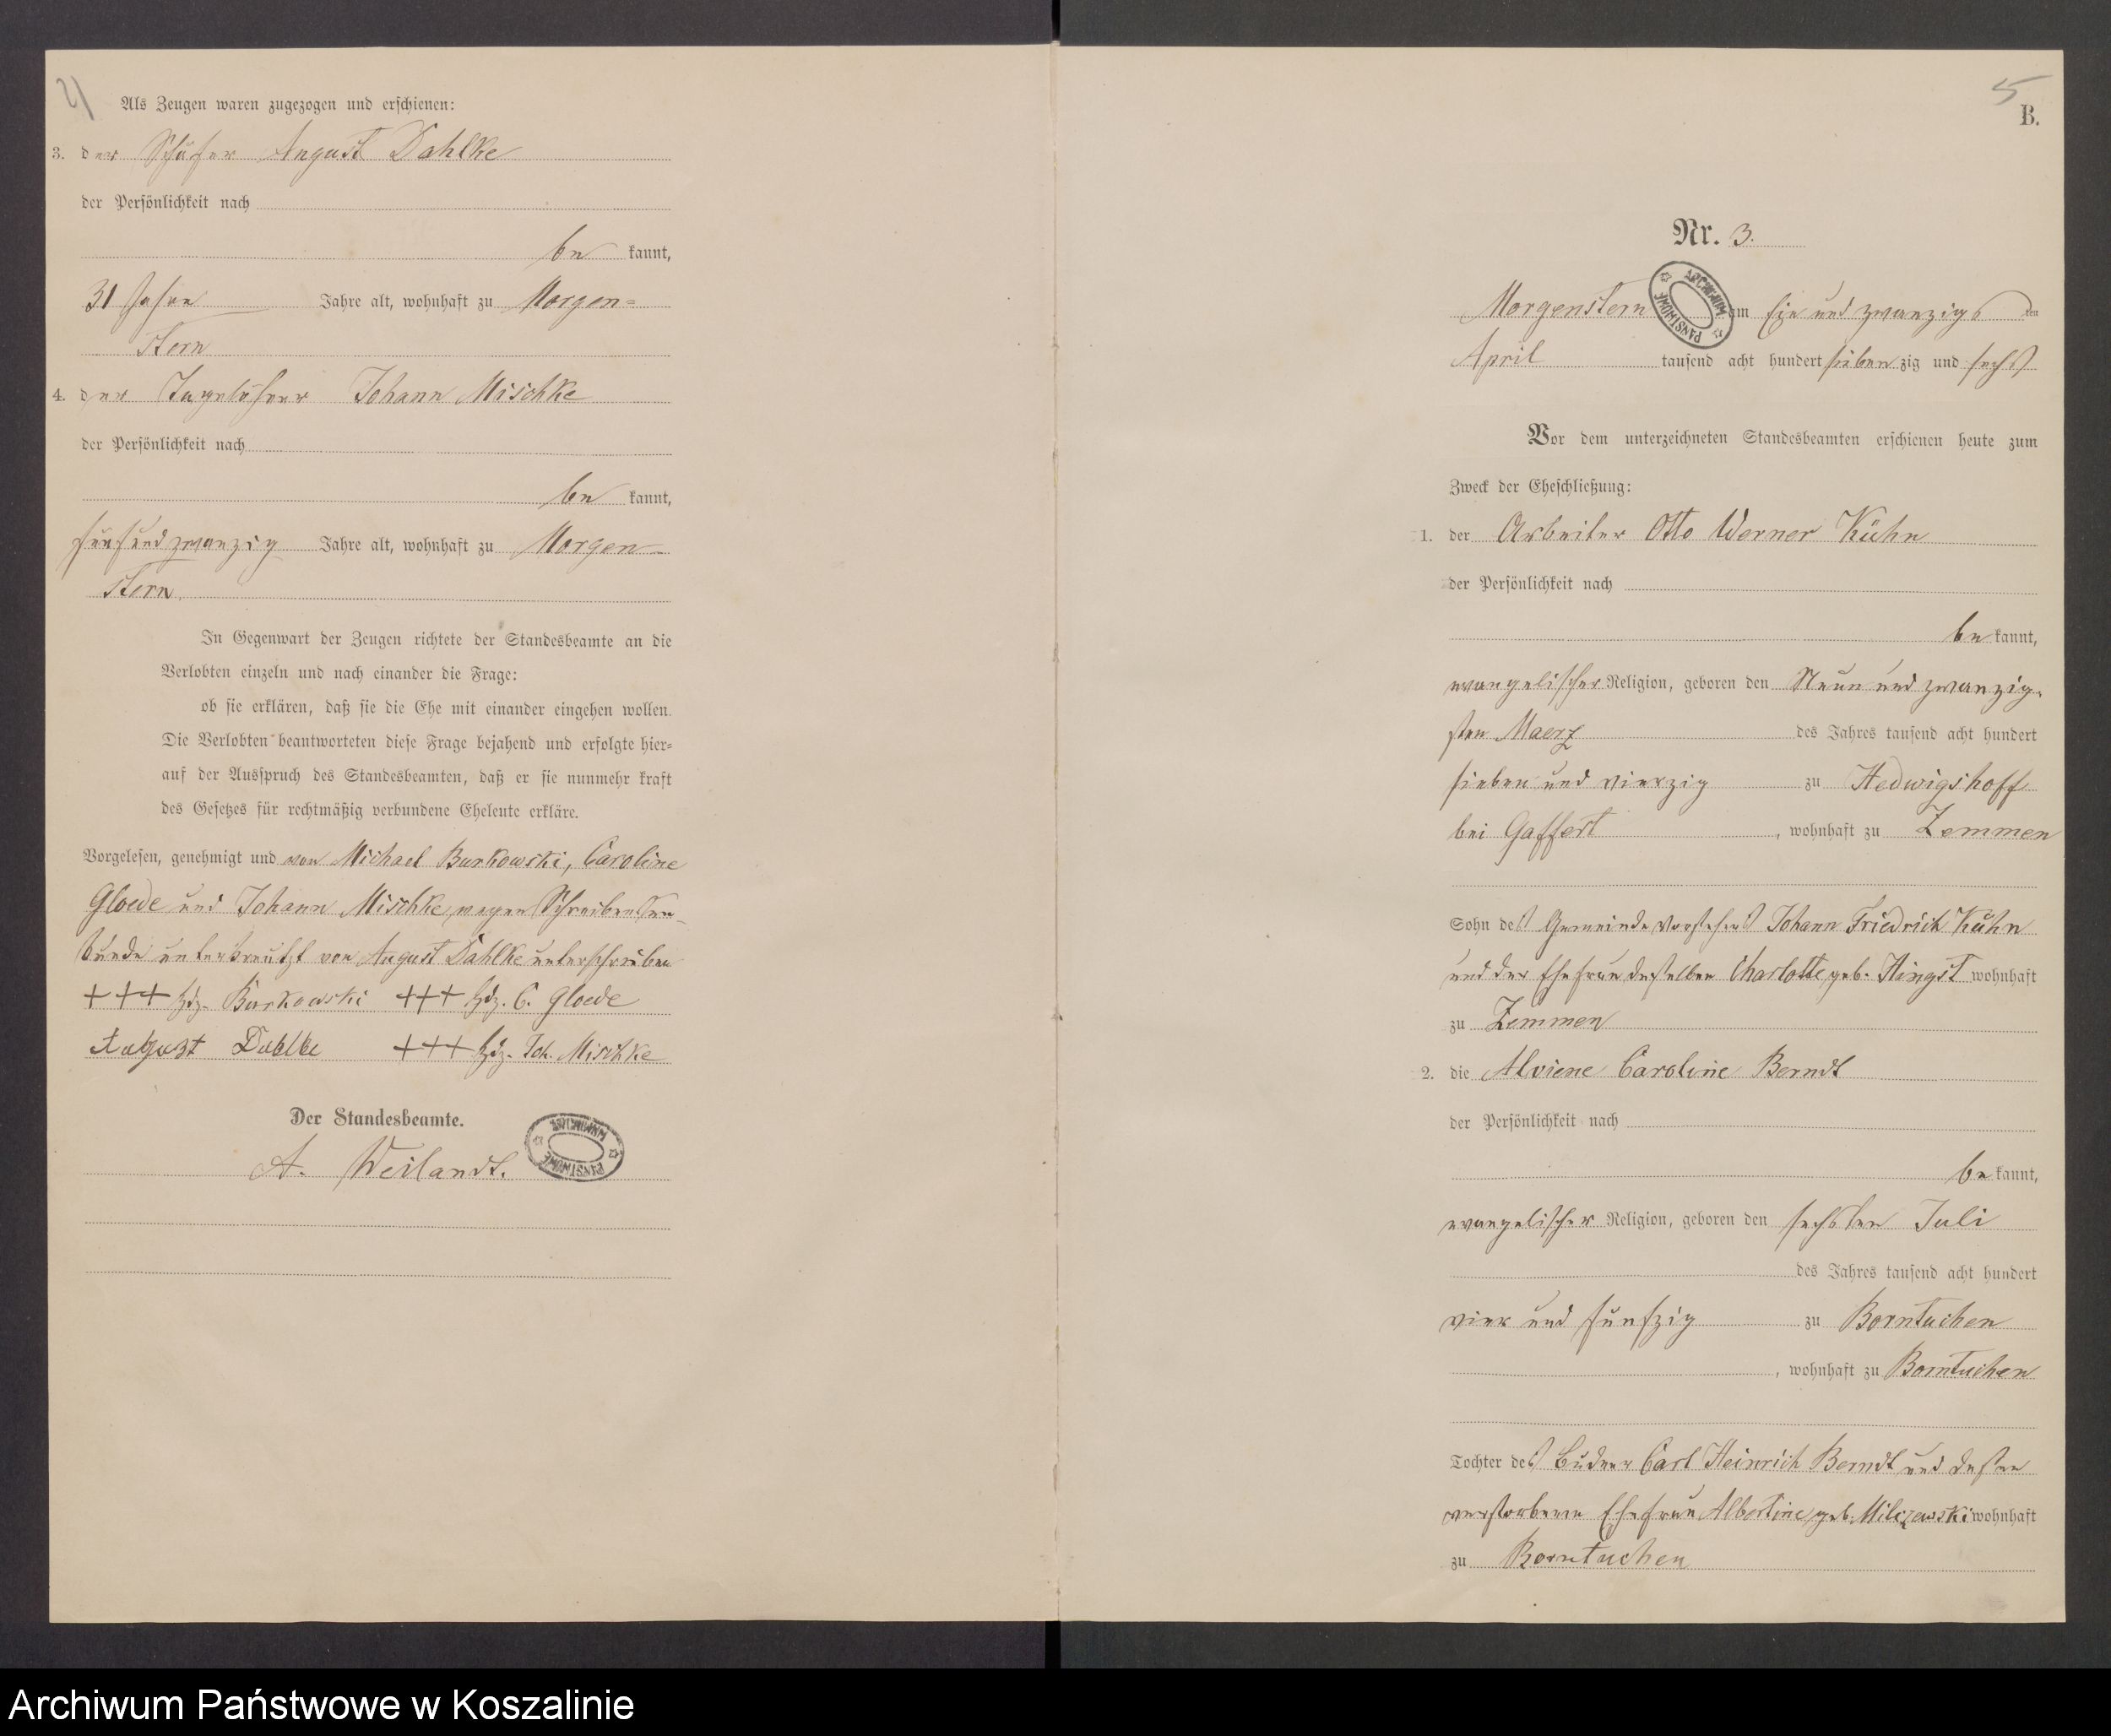 4
Als Zeugen waren zugezogen und erschienen:
3. der Schäfer August Dahlke
der Persönlichkeit nach
be kannt,
31 Jahre Jahre alt, wohnhaft zu Morgen=
stern
4. der Tagelöhner Johann Mischke
der Persönlichkeit nach
be kannt,
fünfundzwanzig Jahre alt, wohnhaft zu Morgen-
stern.
In Gegenwart der Zeugen richtete der Standesbeamte an die
Verlobten einzeln und nach einander die Frage:
ob sie erklären, daß sie die Ehe mit einander eingehen wollen.
Die Verlobten beantworteten diese Frage bejahend und erfolgte hier=
auf der Ausspruch des Standesbeamten, daß er sie nunmehr kraft
des Gesetzes für rechtmäßig verbundene Eheleute erkläre.
Vorgelesen, genehmigt und von Michael Burkowski, Caroline
Gloede und Johann Mischke, wegen Schreibensun-
kunde unterkreutzt von August Dahlke unterschrieben
+++ Hdz. Burkowski +++ Hdz. C. Gloede
August Dahlke +++ Hdz. Joh. Mischke
Der Standesbeamte.
A. Weilandt.
ARCHIWUM PAŃSTWOWE
5
B.
Nr. 3.
ARCHIWUM PAŃSTWOWE
Morgenstern am Ein und zwanzigs ten
April tausend acht hundert sieben zig und sechs
Vor dem unterzeichneten Standesbeamten erschienen heute zum
Zweck der Eheschließung:
1. der Arbeiter Otto Werner Kühn
der Persönlichkeit nach
be kannt,
evangelischer Religion, geboren den Neun und zwanzig-
sten Maerz des Jahres tausend acht hundert
sieben und vierzig zu Hedwigshoff
bei Gaffert, wohnhaft zu Zemmen
Sohn des Gemeinde Vorstehers Johann Friedrich Kühn
und der Ehefrau desselben Charlotte, geb. Hingst wohnhaft
zu Zemmen
2. die Alviene Caroline Berndt
der Persönlichkeit nach
be kannt,
evangelischer Religion, geboren den sechsten Juli
des Jahres tausend acht hundert
vier und fünfzig zu Borntuchen
, wohnhaft zu Borntuchen
Tochter des Büdner Carl Heinrich Berndt und dessen
verstorbenen Ehefrau Albertine, geb. Milczewski wohnhaft
zu Borntuchen
Archiwum Państwowe w Koszalinie